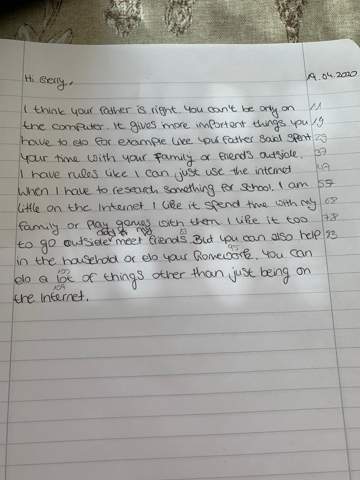 Hi Gerry, 19.04.2020
I think your father is right. You can't be only on 11
the computer. It gives more important things you 19
have to do for example like your father said spent 29
your time with your family or friends outside. 37
I have rules like I can just use the internet 47
when I have to research something for school. I am 57
little on the Internet I like it spend time with my 68
family or play games with them I like it too 78
to go outside and to meet my friends. But you can also help 93
in the household or do your homework. You can
do a lot of things other than just being on
the Internet.